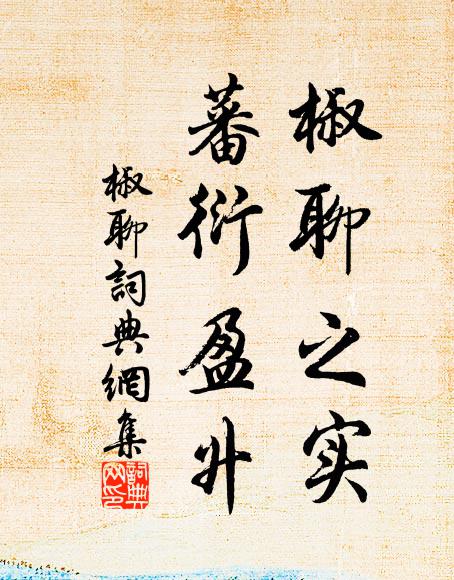 椒聊之实
蕃衍盈升
椒聊詞典網集
詞典网印